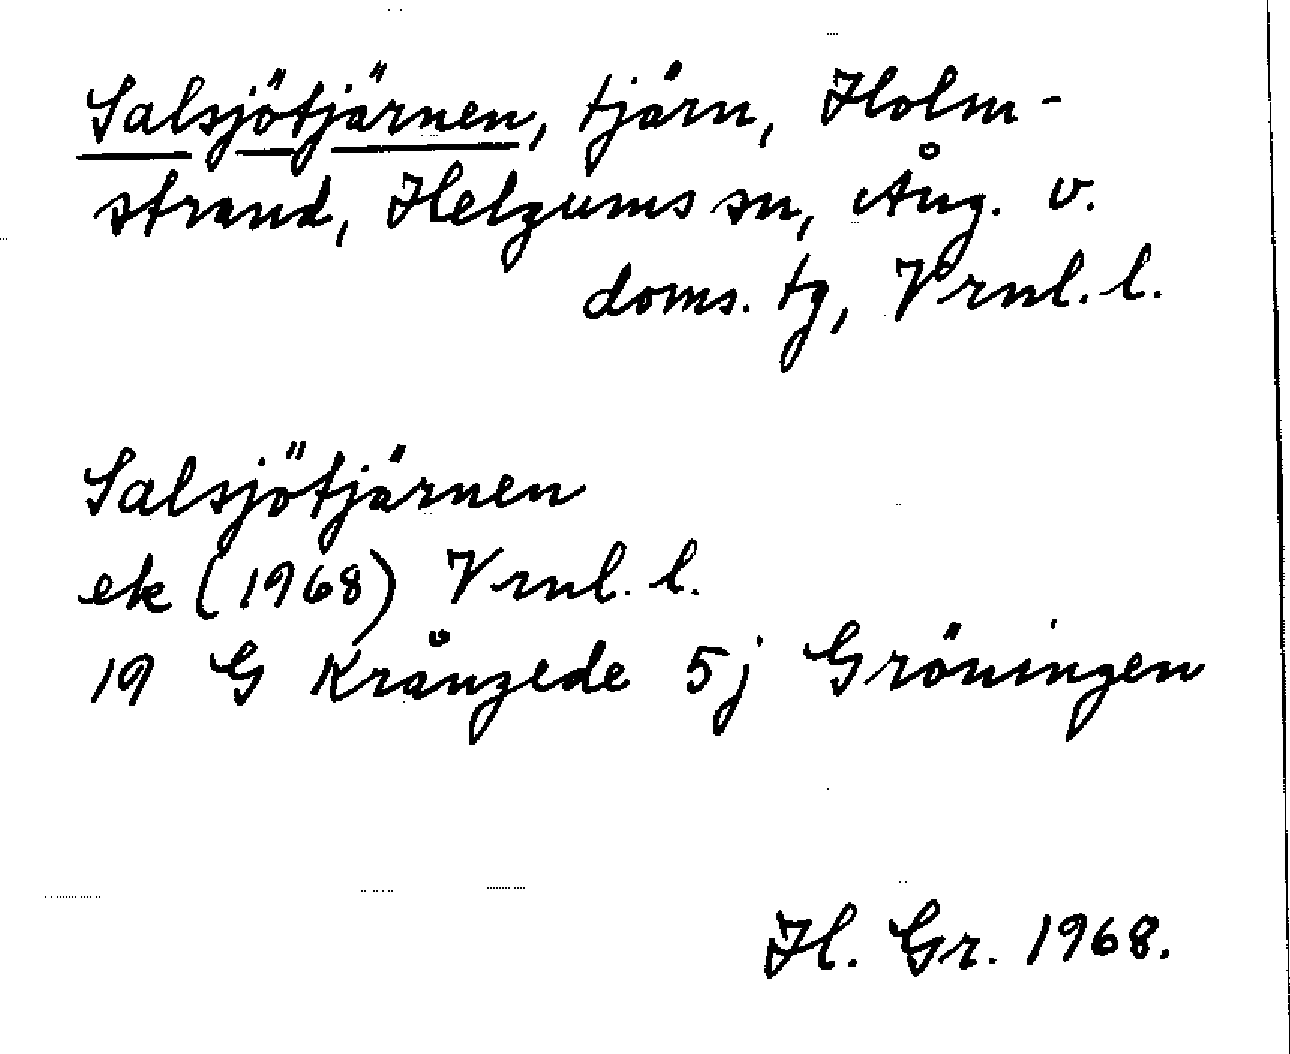 Salsjötjärnen, tjärn, Holm-
strand, Helgums sn, Ång. v.
doms. tg, Vrnl. l.
Salsjötjärnen
ek (1968) Vrnl. l.
19 G Krångede 5j Gröningen
H. Gr. 1968.